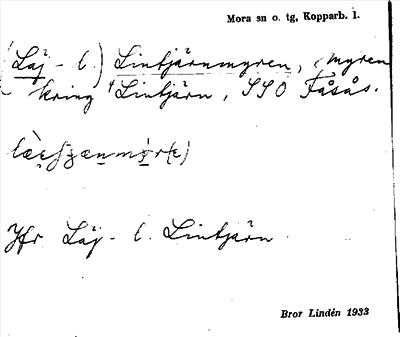 Mora sn o. tg, Kopparb. l.
(Läj - l.) Lintjärnmyren, myren
kring Lintjärn, SSO Fåsås.
Jfr Läj - l. Lintjärn
Bror Lindén 1933